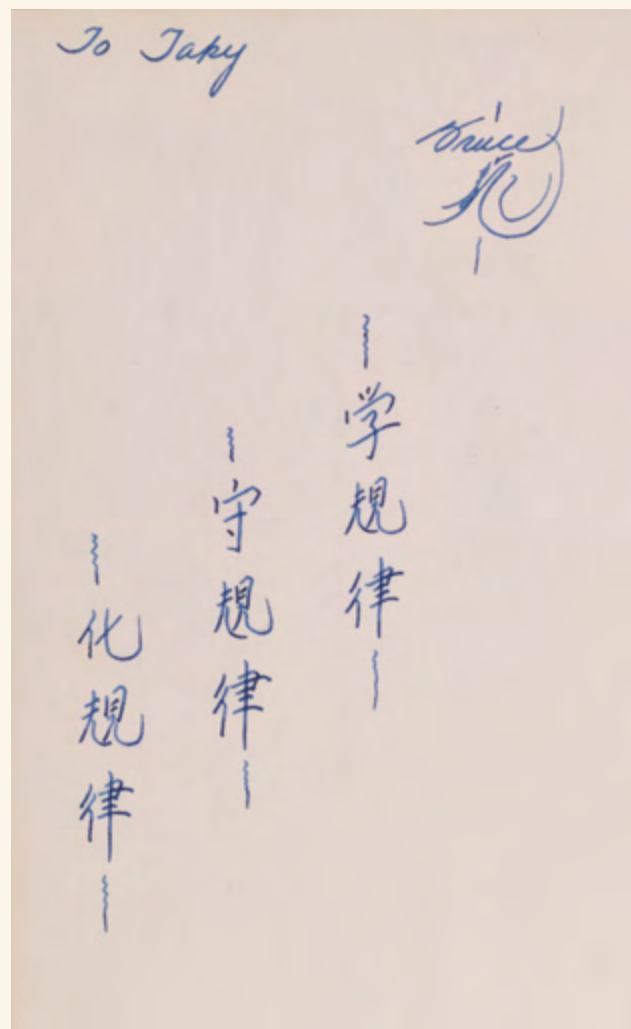 To Taky
Bruce
龍
学規律
守規律
化規律